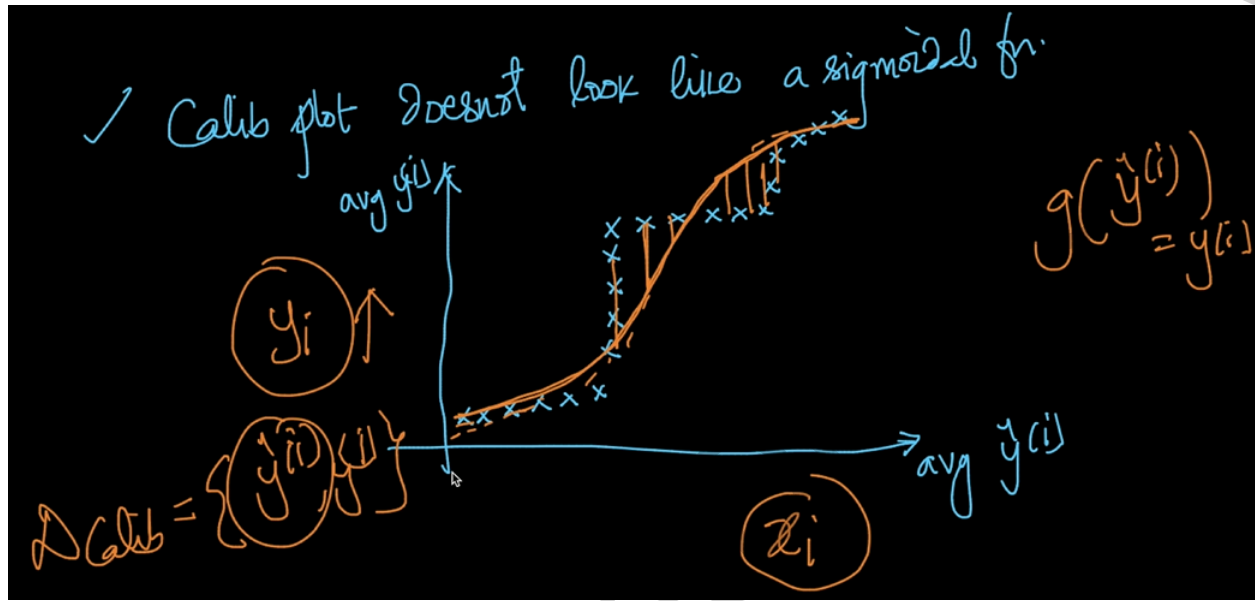 ✓ Calib plot doesnot look like a sigmoidal fn.
avg y(i)
g(ŷ(i))
= y(i)
yi ↑
avg ŷ(i)
D Calib = {ŷ(i) y(i)}
xi